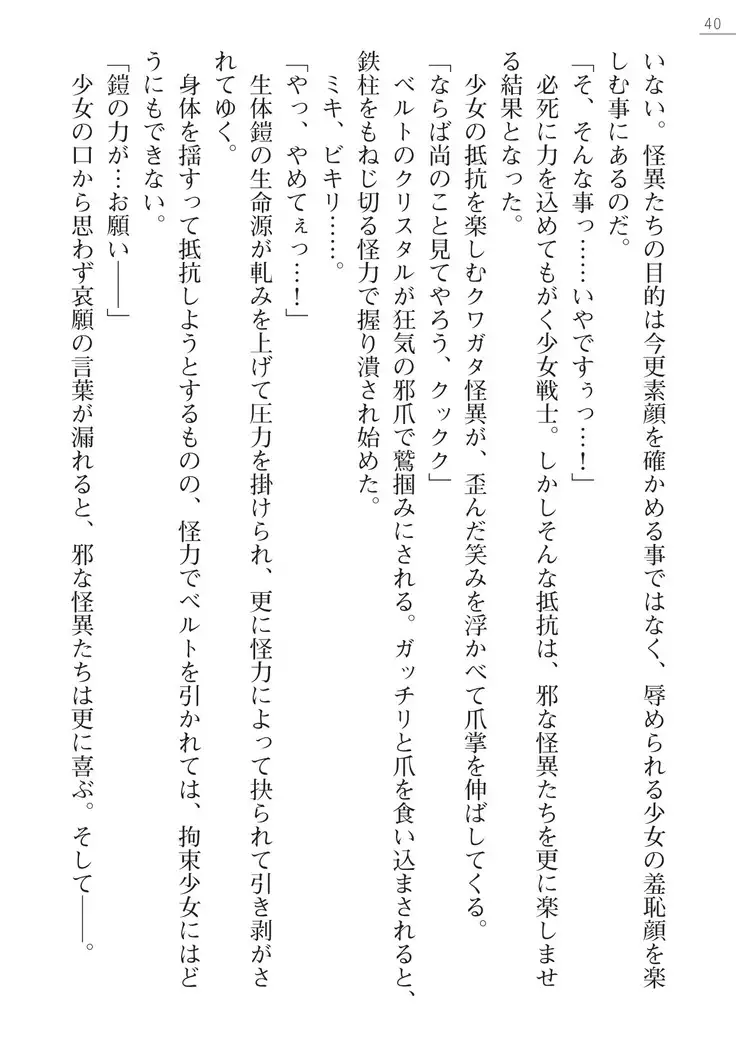 40
いない。怪異たちの目的は今更素顔を確かめる事ではなく、辱められる少女の羞恥顔を楽
しむ事にあるのだ。
「そ、そんな事っ……いやですぅっ…！」
必死に力を込めてもがく少女戦士。しかしそんな抵抗は、邪な怪異たちを更に楽しませ
る結果となった。
少女の抵抗を楽しむクワガタ怪異が、歪んだ笑みを浮かべて爪掌を伸ばしてくる。
「ならば尚のこと見てやろう、クックク」
ベルトのクリスタルが狂気の邪爪で鷲掴みにされる。ガッチリと爪を食い込まされると、
鉄柱をもねじ切る怪力で握り潰され始めた。
ミキ、ビキリ……。
「やっ、やめてぇっ…！」
生体鎧の生命源が軋みを上げて圧力を掛けられ、更に怪力によって抉られて引き剥がさ
れてゆく。
身体を揺すって抵抗しようとするものの、怪力でベルトを引かれては、拘束少女にはど
うにもできない。
「鎧の力が…お願い――」
少女の口から思わず哀願の言葉が漏れると、邪な怪異たちは更に喜ぶ。そして――。